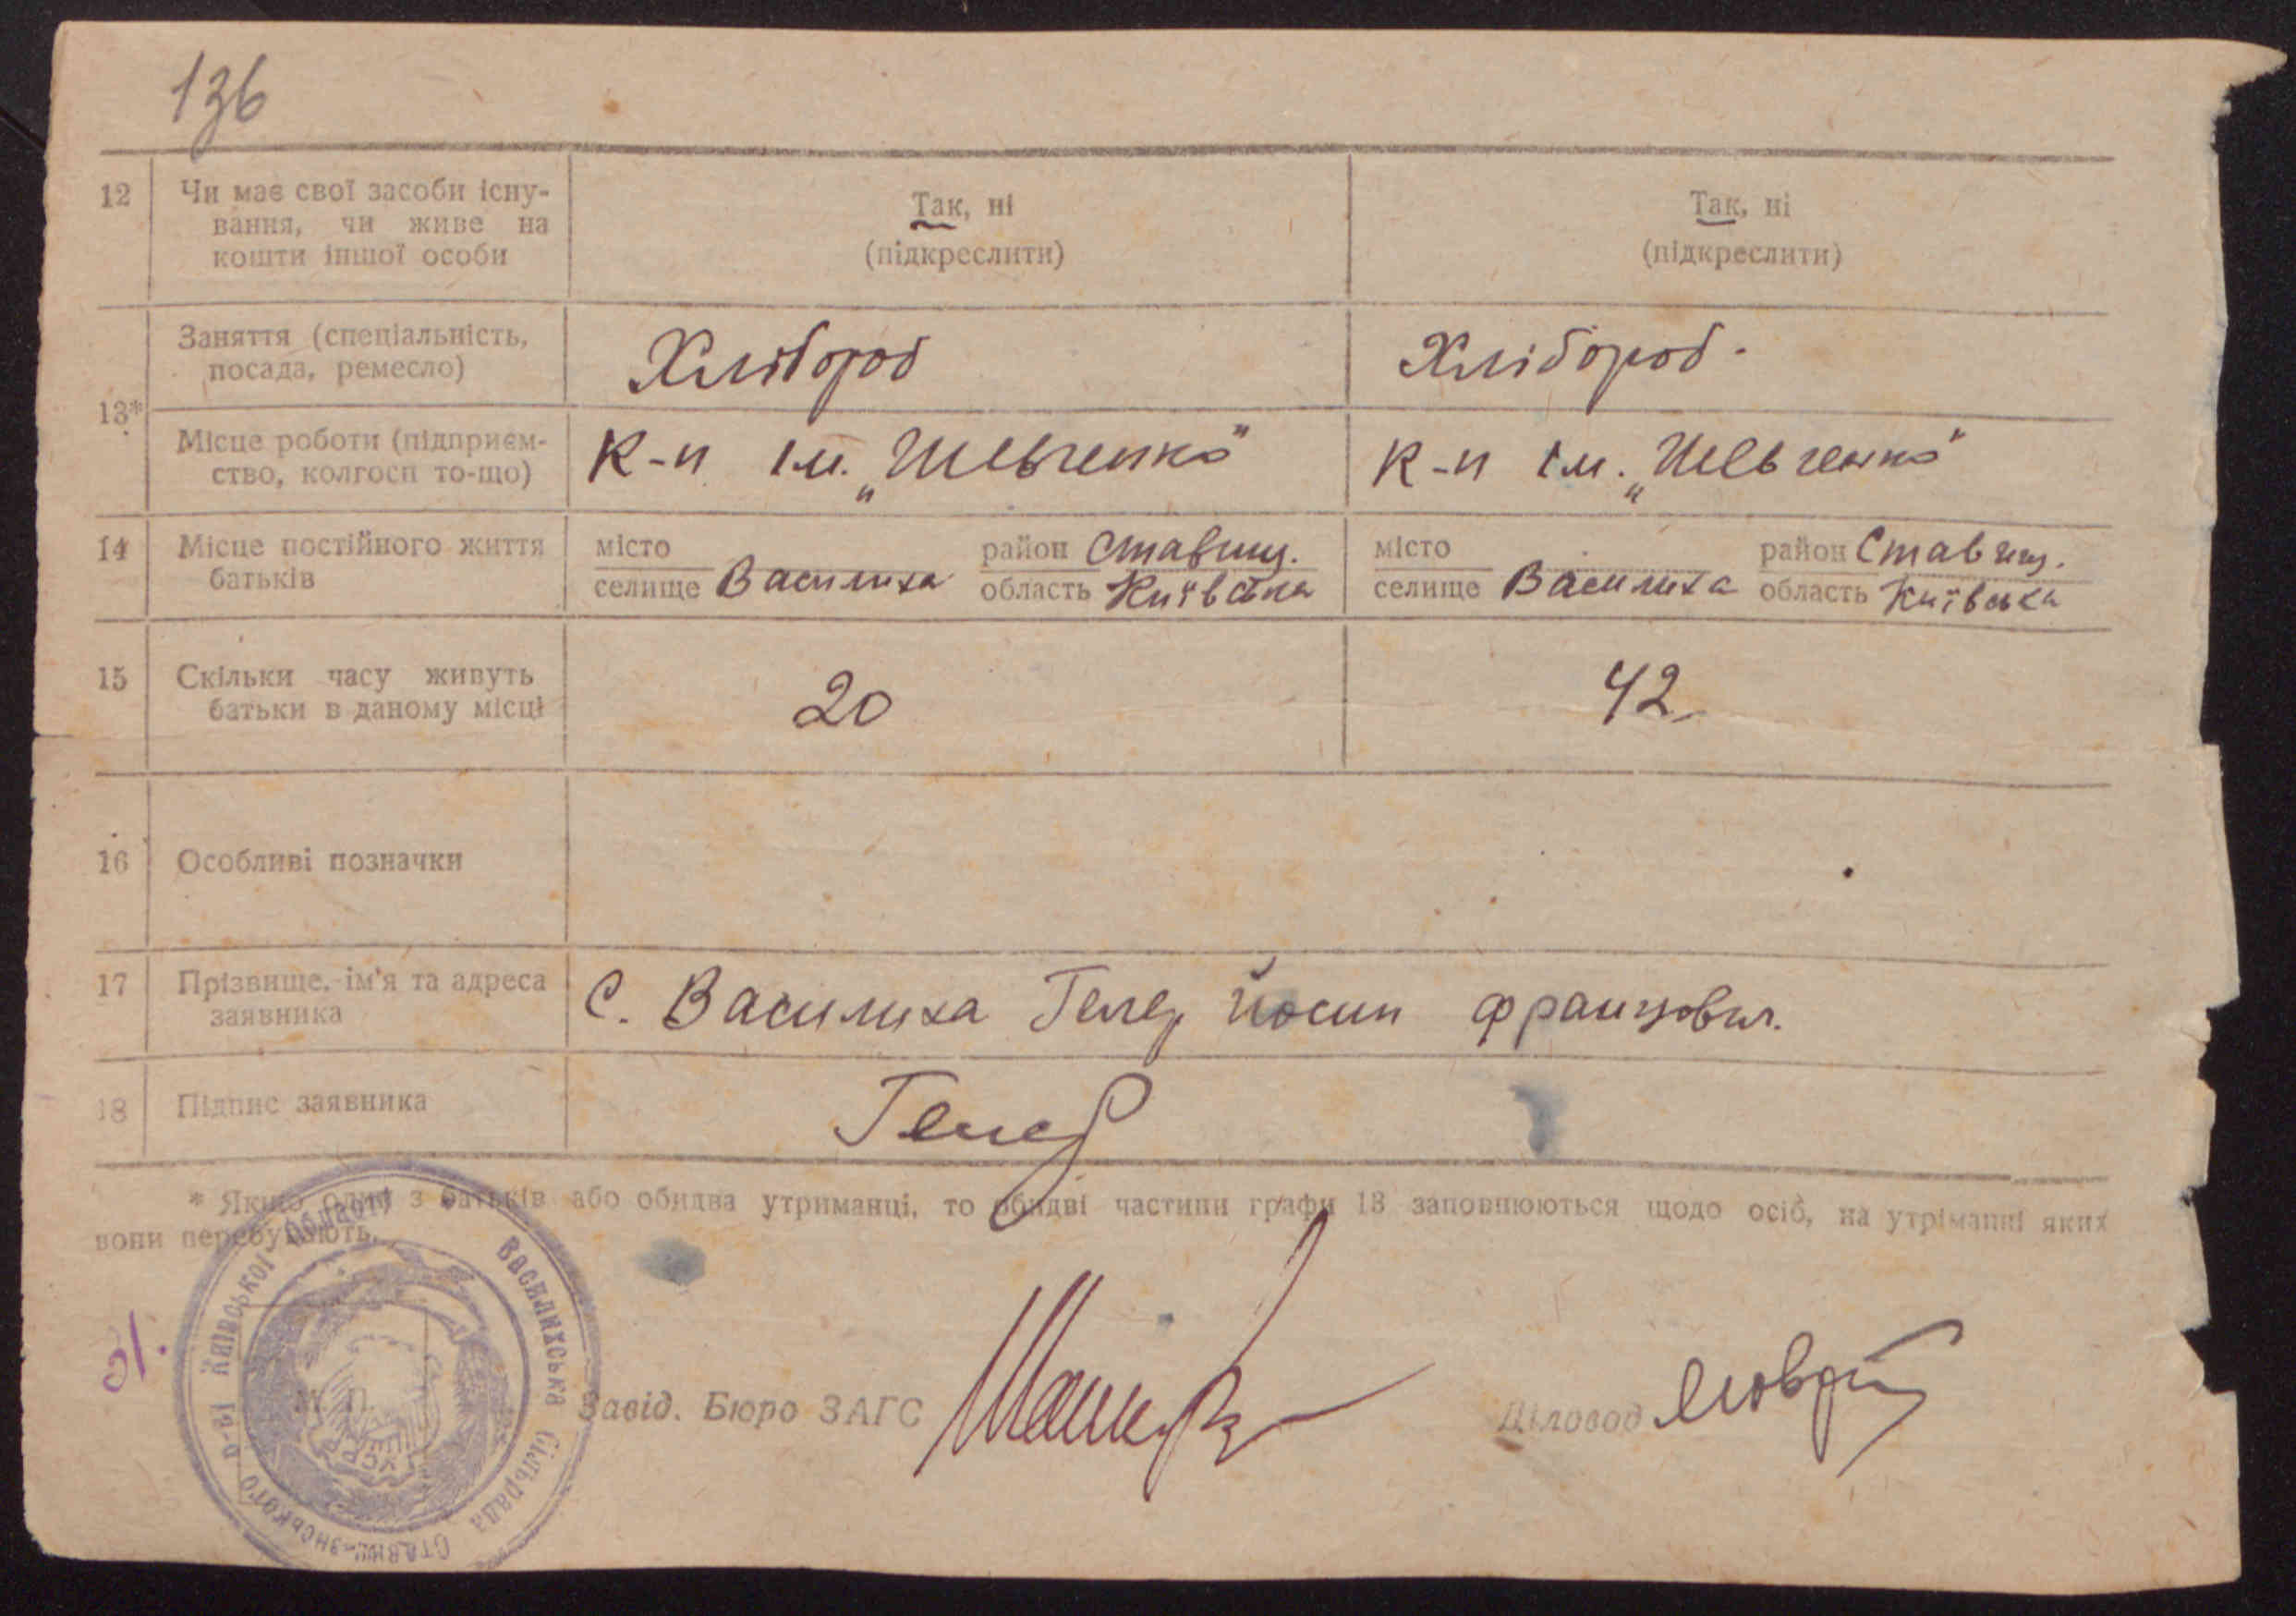 136
12 Чи має свої засоби існу-
вання, чи живе на
кошти іншої особи
Так, ні
(підкреслити)
Так, ні
(підкреслити)
13*
Заняття (спеціальність,
посада, ремесло)
Хлібороб
Хлібороб.
Місце роботи (підприєм-
ство, колгосп то-що)
К-п ім. „Шевченко"
К-п ім. „Шевченко"
14 Місце постійного життя
батьків
місто
селище Василиха
район Ставищ.
область Київська
місто
селище Василиха
район Ставищ.
область Київська
15 Скільки часу живуть
батьки в даному місці
20
42
16 Особливі позначки
17 Прізвище, ім'я та адреса
заявника
С. Василиха Гелер Йосип Францович.
18 Підпис заявника
Гелер
* Якщо один з батьків або обидва утриманці, то обидві частини графи 13 заповнюються щодо осіб, на утріманні яких
вони перебувають.
31.
Василихська Сільрада
Київської області
М. П.
УСРР
Завід. Бюро ЗАГС
Діловод